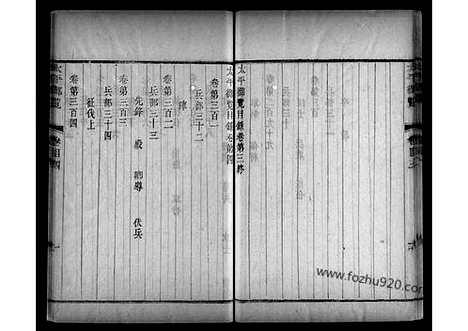 太平御覽目錄卷第三終
太平御覽目錄卷第四
卷第三百一
兵部三十二
陣
卷第三百二
兵部三十三
先鋒 殿 鄉導 伏兵
卷第三百三
兵部三十四
征伐上
卷第三百四
太平御覽
https://www.fozhu920.com/